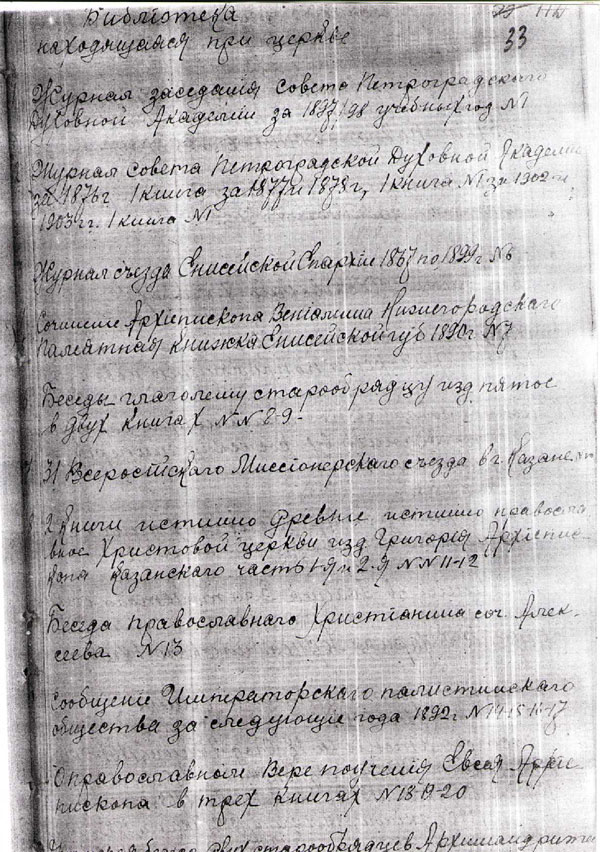 Библіотека
находящаяся при церкве
33
Журнал заседания совета Петроградскаго
Духовной Академіи за 1897/98 учебных год №1
Журнал совета Петроградской Духовной Академии
за 1876г 1 книга за 1877 и 1878г, 1 книга №1 за 1902 и
1903гг. 1 книга №
Журнал съезда Енисейской Епархіи по 1899г №6
Сочинение Архіепископа Веніамина Нижегородскаго
Памятная книжка Енисейской губ 1890г №7
Беседы глаголему старообрядцу изд пятое
в двух книгах №№ 8-9-
31 Всеросійскаго Миссіонерскаго съезда в г. Казане
2 Книги истинно древне истинно правосла
вное Христовой церкви изд Григорія Архіепис-
копа Казанскаго часть 1-я и 2-я №№ 11-12
Беседа православнаго Христіанина соч. Алек-
сеева №13
Сообщеніе Императорскаго палистинскаго
общества за следующіе года 1892г №14-15-16-17
О православной Вере поученія Евсея Архіе
пископа в трех книгах № 19-20
старообрядцев Архимандрита